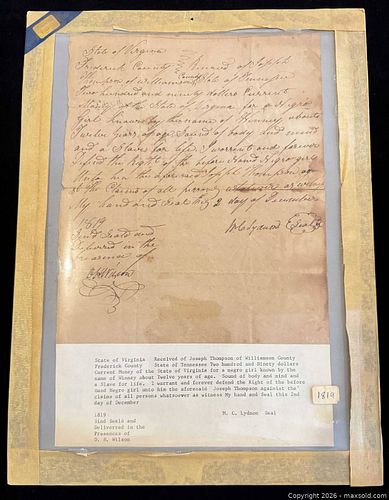 State of Virginia
Frederick County Received of Joseph
Thompson of Williamson County State of Tennessee
Two hundred and ninety dollars Current
Money of the State of Virginia for a Negro
girl known by the name of Winney about
Twelve years of age Sound of body and mind
and a Slave for life I warrant and forever
defend the Right of the before Hand Negro girl
unto him the aforesaid Joseph Thompson
the Claims of all persons
My hand and Seal this 2 day of December
1819
Sind Seald and
delivered in the
presence of
Wilson
M C Lydnor Seal
State of Virginia Received of Joseph Thompson of Williamson County
Frederick County State of Tennessee Two hundred and Ninety dollars
Current Money of the State of Virginia for a negro girl known by the
name of Winney about Twelve years of age. Sound of body and mind and
a Slave for life. I warant and forever defend the Right of the before
Hand Negro girl unto him the aforesaid Joseph Thompson against the'
claims of all persons whatsoever as witness My hand and Seal this 2nd
day of December
1819 M. C. Lydnor Seal
Sind Seald and
Delivered in the
Presences of
O. S. Wilson
1819
© Copyright 2026 - maxsold.com